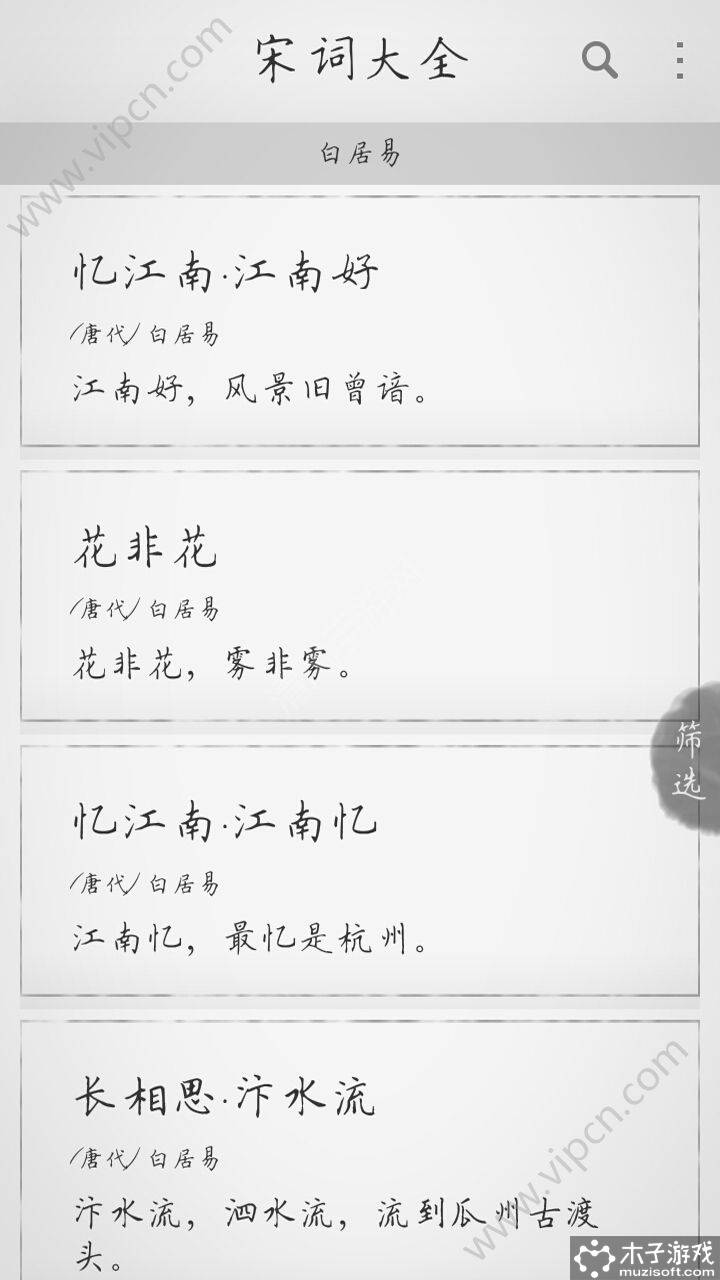 宋词大全
www.vipcn.com
白居易
忆江南·江南好
/唐代/ 白居易
江南好，风景旧曾谙。
花非花
/唐代/ 白居易
花非花，雾非雾。
筛选
忆江南·江南忆
/唐代/ 白居易
江南忆，最忆是杭州。
长相思·汴水流
/唐代/ 白居易
汴水流，泗水流，流到瓜州古渡
头。
www.vipcn.com
木子游戏
muzisoft.com